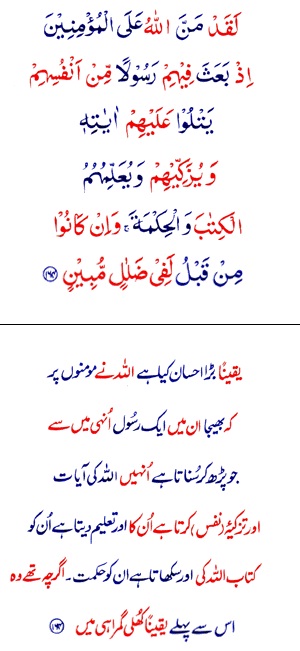 لَقَدْ مَنَّ اللّٰهُ عَلَى الْمُؤْمِنِيْنَ
اِذْ بَعَثَ فِيْهِمْ رَسُوْلًا مِّنْ اَنْفُسِهِمْ
يَتْلُوْا عَلَيْهِمْ اٰيٰتِهٖ
وَيُزَكِّيْهِمْ وَيُعَلِّمُهُمُ
الْكِتٰبَ وَالْحِكْمَةَ ۚ وَاِنْ كَانُوْا
مِنْ قَبْلُ لَفِيْ ضَلٰلٍ مُّبِيْنٍ ﴿۱۶۴﴾
یقیناً بڑا احسان کیا ہے اللہ نے مومنوں پر
کہ بھیجا ان میں ایک رسُول اُنہی میں سے
جو پڑھ کر سُناتا ہے اُنہیں اللہ کی آیات
اور تزکیۂ (نفس) کرتا ہے اُن کا اور تعلیم دیتا ہے اُن کو
کتاب اللہ کی اور سکھاتا ہے ان کو حکمت۔ اگرچہ تھے وہ
اس سے پہلے یقیناً کھُلی گمراہی میں ﴿۱۶۴﴾